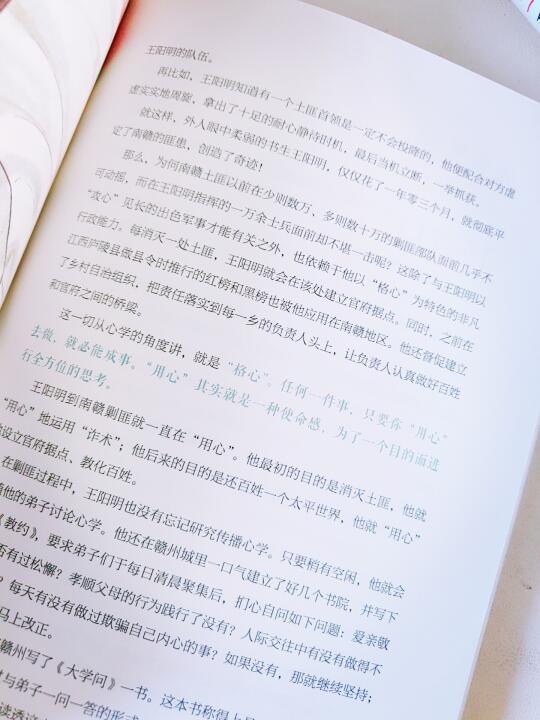 王阳明的队伍。
再比如，王阳明知道有一个土匪首领是一定不会投降的，他便配合对方虚
虚实实地周旋，拿出了十足的耐心静待时机，最后当机立断，一举抓获。
就这样，外人眼中柔弱的书生王阳明，仅仅花了一年零三个月，就彻底平
定了南赣的匪患，创造了奇迹！
那么，为何南赣土匪以前在少则数万、多则数十万的剿匪部队面前几乎不
可动摇，而在王阳明指挥的一万余士兵面前却不堪一击呢？这除了与王阳明以
“攻心”见长的出色军事才能有关之外，也依赖于他以“格心”为特色的非凡
行政能力。每消灭一处土匪，王阳明就会在该处建立官府据点。同时，之前在
江西庐陵县做县令时推行的红榜和黑榜也被他应用在南赣地区。他还督促建立
了乡村自治组织，把责任落实到每一乡的负责人头上，让负责人认真做好百姓
和官府之间的桥梁。
这一切从心学的角度讲，就是“格心”。任何一件事，只要你“用心”
去做，就必能成事。“用心”其实就是一种使命感，为了一个目的而进
行全方位的思考。
王阳明到南赣剿匪就一直在“用心”。他最初的目的是消灭土匪，他就
“用心”地运用“诈术”；他后来的目的是还百姓一个太平世界，他就“用心”
设立官府据点、教化百姓。
在剿匪过程中，王阳明也没有忘记研究传播心学。只要稍有空闲，他就会
他的弟子讨论心学。他还在赣州城里一口气建立了好几个书院，并写下
《教约》，要求弟子们于每日清晨聚集后，扪心自问如下问题：爱亲敬
否有过松懈？孝顺父母的行为践行了没有？人际交往中有没有做得不
？每天有没有做过欺骗自己内心的事？如果没有，那就继续坚持；
马上改正。
赣州写了《大学问》一书。这本书称得上是
与弟子一问一答的形式
读透这